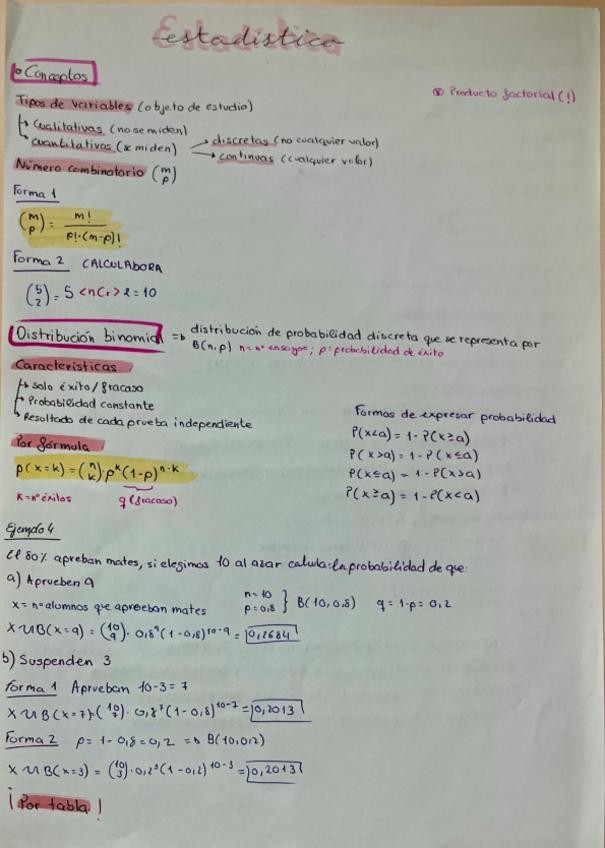 estadistica
Conceptos
⊗ Producto factorial (!)
Tipos de variables (objeto de estudio)
↳ Cualitativas (no se miden)
↳ cuantitativas (se miden) → discretas (no cualquier valor)
→ continuas (cualquier valor)
Número combinatorio (m p)
Forma 1
(m p) = m! / p!·(m-p)!
Forma 2 CALCULADORA
(5 2) = 5 <nCr> 2 = 10
Distribución binomial => distribución de probabilidad discreta que se representa por
B(n,p) n = nº ensayos; p = probabilidad de éxito
Características
↳ Solo éxito/fracaso
↳ Probabilidad constante
↳ Resultado de cada prueba independiente
Formas de expresar probabilidad
P(x<a) = 1 - P(x≥a)
P(x>a) = 1 - P(x≤a)
P(x≤a) = 1 - P(x>a)
P(x≥a) = 1 - P(x<a)
Por fórmula
p(x=k) = (n k)·p^k (1-p)^n-k
K = nº éxitos q (fracaso)
Ejemplo 1
El 80% aprueban mates, si elegimos 10 al azar calcula: la probabilidad de que:
a) Aprueben 9
x = nº alumnos que aprueban mates n=10 p=0,8 } B(10,0,8) q = 1-p = 0,2
X ~ B(x=9) = (10 9)·0,8^9 (1-0,8)^10-9 = 0,2684
b) Suspenden 3
Forma 1 Aprueban 10-3=7
X ~ B(x=7) = (10 7)·0,8^7 (1-0,8)^10-7 = 0,2013
Forma 2 p = 1-0,8 = 0,2 => B(10,0,2)
X ~ B(x=3) = (10 3)·0,2^3 (1-0,2)^10-3 = 0,2013
¡Por tabla!